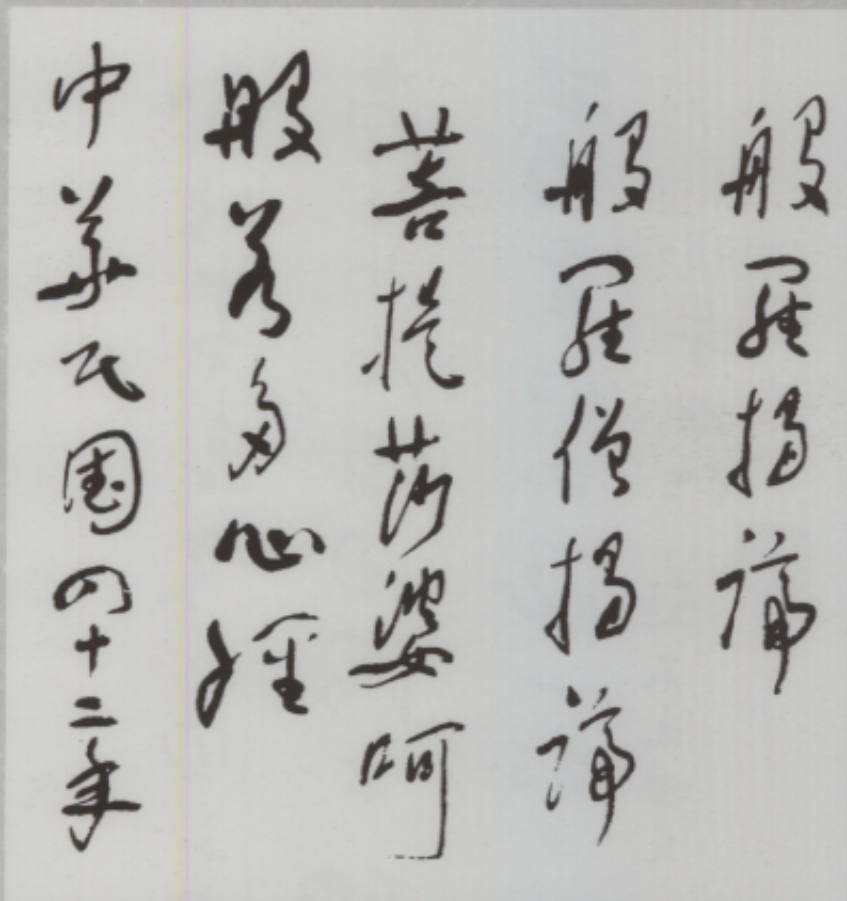 般羅揭諦
般羅僧揭諦
菩提莎婆呵
般若多心經
中華民國四十二年